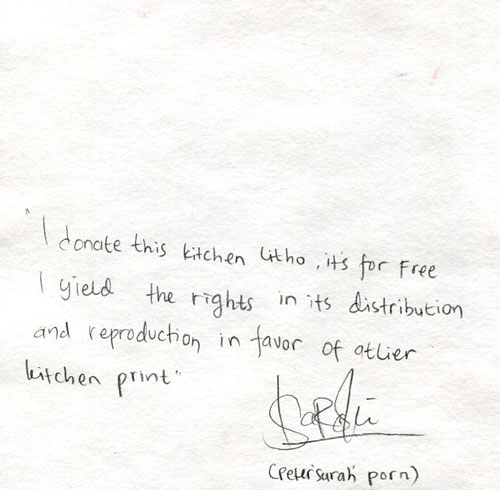 "I donate this kitchen litho, it's for Free
I yield the rights in its distribution
and reproduction in favor of atlier
kitchen print"
(petersurah porn)